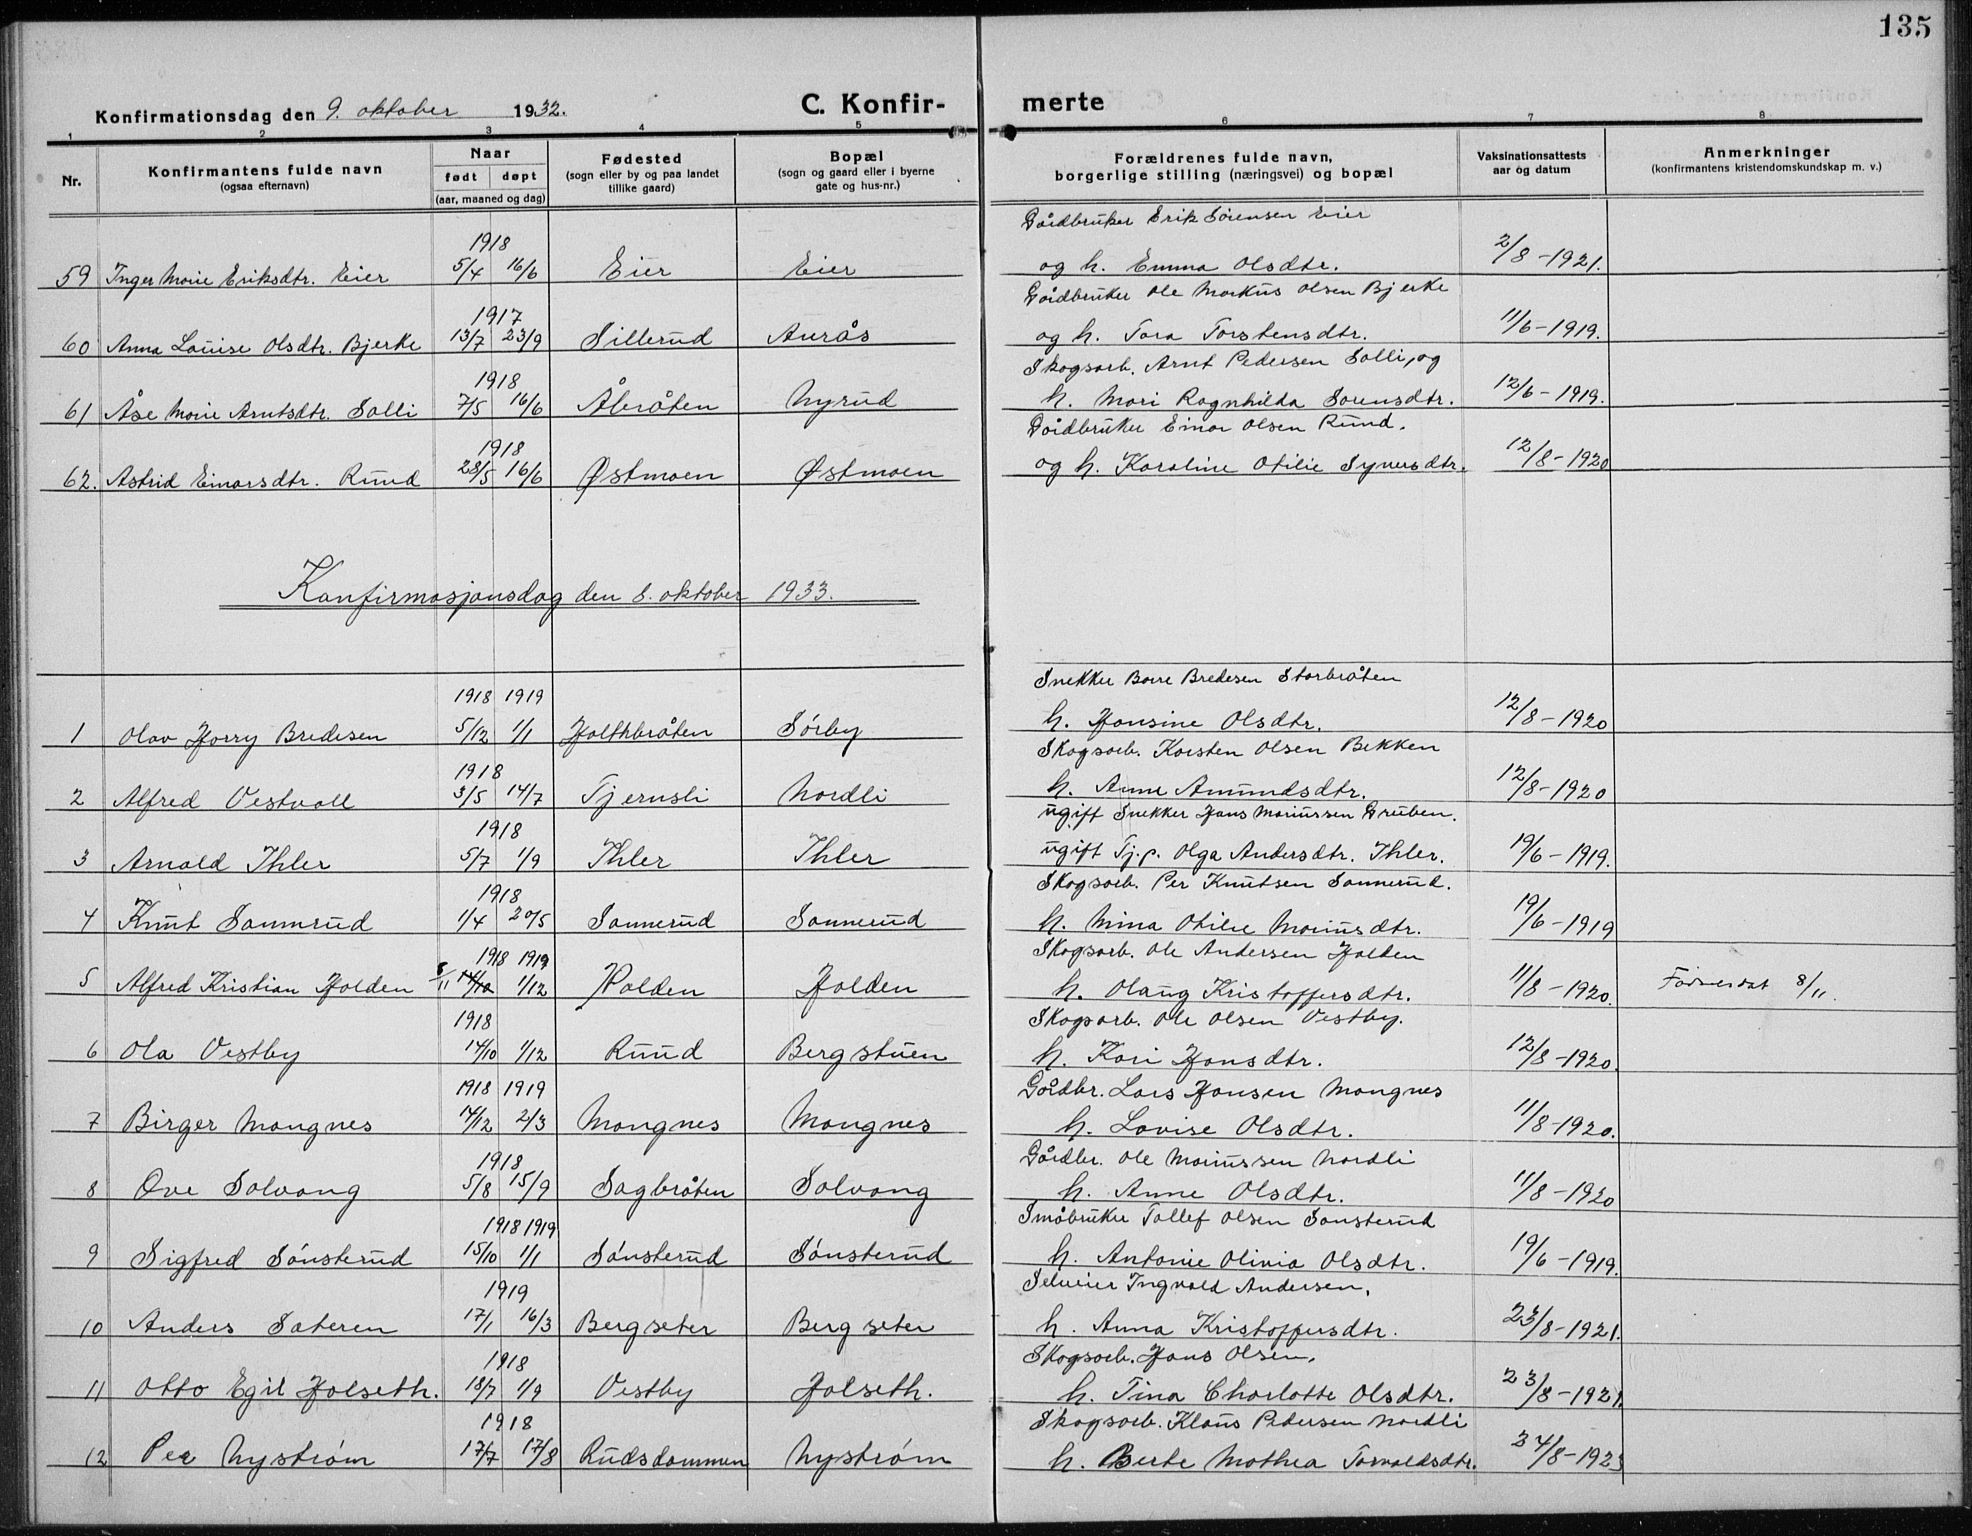 135
Konfirmationsdag den 9. oktober 1932.
C. Konfir- merte
1 2 3 4 5 6 7 8
Nr.
Konfirmantens fulde navn
(ogsaa efternavn)
Naar
født døpt
(aar, maaned og dag)
Fødested
(sogn eller by og paa landet
tillike gaard)
Bopæl
(sogn og gaard eller i byerne
gate og hus-nr.)
Forældrenes fulde navn,
borgerlige stilling (næringsvei) og bopæl
Vaksinationsattests
aar og datum
Anmerkninger
(konfirmantens kristendomskundskap m. v.)
Gårdbruker Erik Sørensen Eier
1918
59 Inger Marie Eriksdtr. Eier 5/4 16/6 Eier Eier og h. Emma Olsdtr. 2/8-1921.
Gårdbruker Ole Markus Olsen Bjerke
1917
60 Anna Louise Olsdtr. Bjerke 13/7 23/9 Sillerud Aurås og h. Tora Torstensdtr. 11/6-1919.
Skogsarb. Arnt Pedersen Solli, og
1918
61 Åse Marie Arntsdtr. Solli 7/5 16/6 Åbråten Nyrud h. Mari Ragnhilda Sorensdtr. 12/6-1919.
Gårdbruker Einar Olsen Ruud.
1918
62. Astrid Einarsdtr. Ruud 28/5 16/6 Østmoen Østmoen og h. Karoline Otilie Syversdtr. 12/8-1920
Konfirmasjonsdag den 8. oktober 1933.
Snekker Borre Bredesen Storbråten
1918 1919
1 Olav Harry Bredesen 5/12 1/1 Holthbråten Sørby h. Hansine Olsdtr. 12/8-1920
Skogsarb. Karsten Olsen Bekken
1918
2 Alfred Vestvoll 3/5 14/7 Tjernsli Nordli h. Anne Amundsdtr. 12/8-1920
ugift Snekker Hans Mariussen Gruben.
1918
3 Arnold Ihler 5/7 1/9 Ihler Ihler ugift Tj.p. Olga Andersdtr. Ihler. 19/6-1919.
Skogsarb. Per Knutsen Sannerud.
1918
4 Knut Sannrud 1/4 20/5 Sannerud Sannerud h. Mina Otilie Mariusdtr. 19/6-1919
Skogsarb. Ole Andersen Holden
1918 1919
5 Alfred Kristian Holden 8/11 14/10 1/12 Holden Holden h. Olaug Kristoffersdtr. 11/8-1920. Fødselsdat 8/11.
Skogsarb. Ole Olsen Vestby.
1918
6 Ola Vestby 14/10 1/12 Ruud Bergstuen h. Kari Hansdtr. 12/8-1920.
Gårdbr. Lars Hansen Mangnes
1918 1919
7 Birger Mangnes 14/12 2/3 Mangnes Mangnes h. Lovise Olsdtr. 11/8-1920.
Gårdbr. Ole Mariussen Nordli
1918
8 Ove Solvang 5/8 15/9 Sagbråten Solvang h. Anne Olsdtr. 11/8-1920
Småbruker Tollef Olsen Sønsterud
1918 1919
9 Sigfred Sønsterud 15/10 1/1 Sønsterud Sønsterud h. Antonie Olivia Olsdtr. 19/6-1919.
Selveier Ingvald Andersen,
1919
10 Anders Sæteren 17/1 16/3 Bergseter Bergseter h. Anna Kristoffersdtr. 23/8-1921.
Skogsarb. Hans Olsen,
1918
11 Otto Egil Holseth. 18/7 1/9 Vestby Holseth. h. Tina Charlotte Olsdtr. 23/8-1921.
Skogsarb. Klaus Pedersen Nordli
1918
12 Per Nystrøm 17/7 17/8 Rudsdammen Nystrøm h. Berte Mathea Torvaldsdtr. 24/8-1923